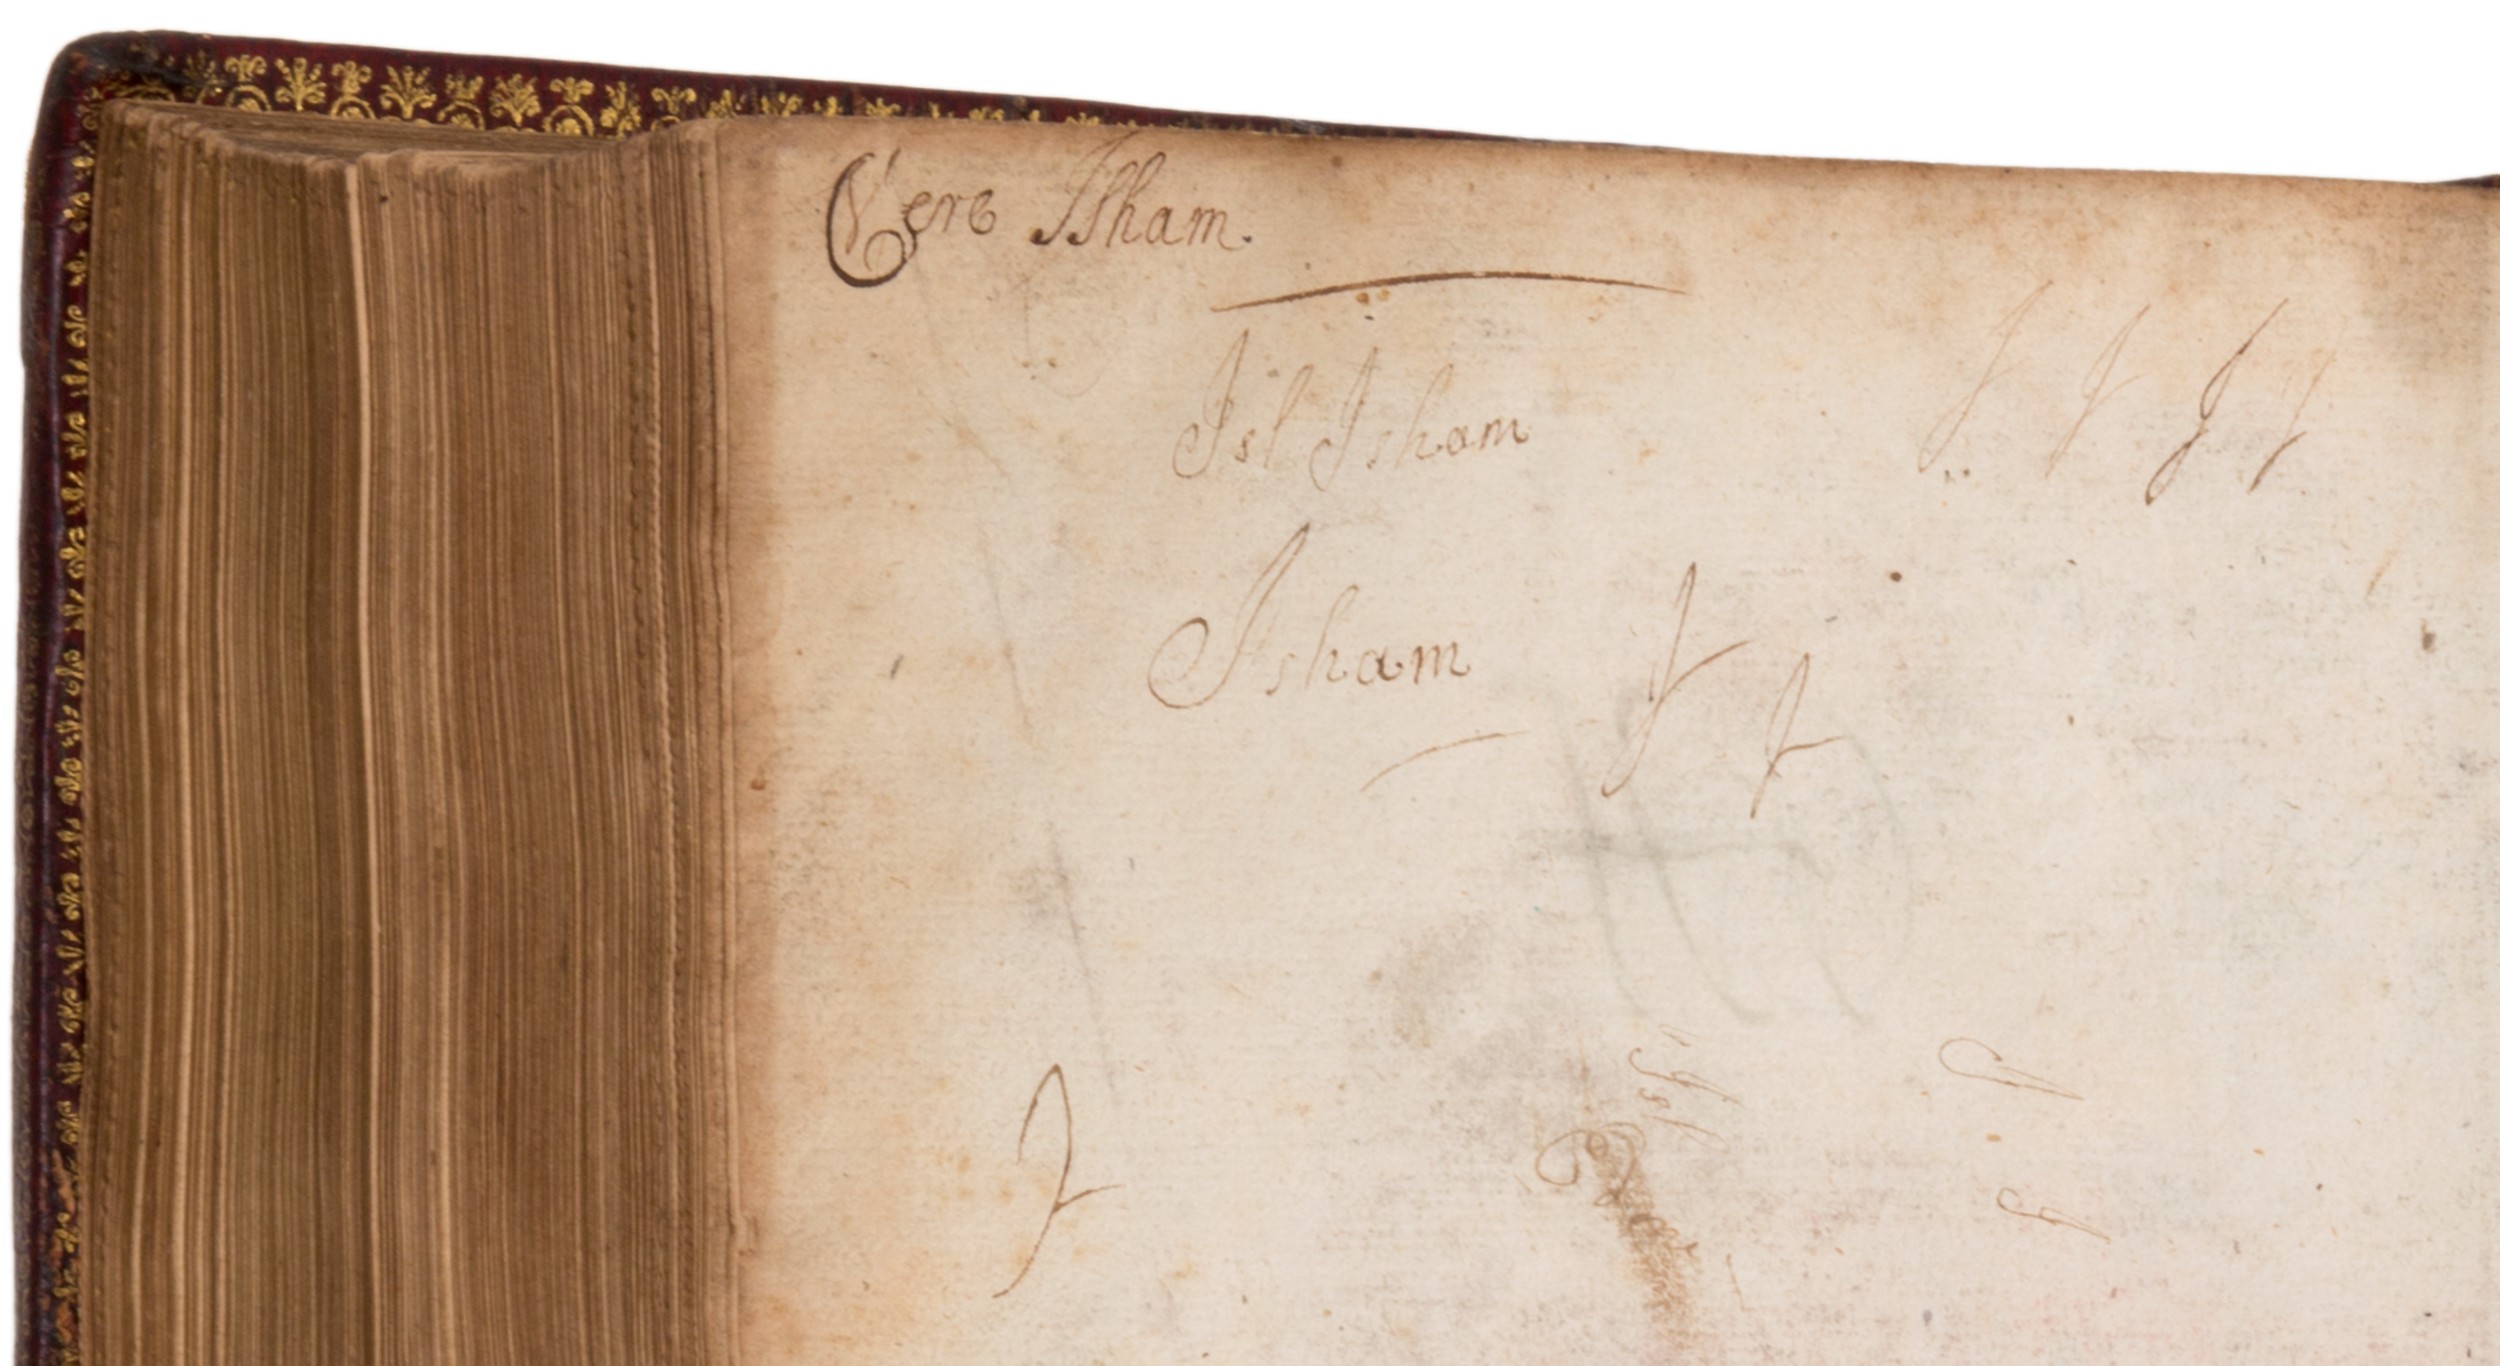 Vere Isham.
Isl Isham
Isham